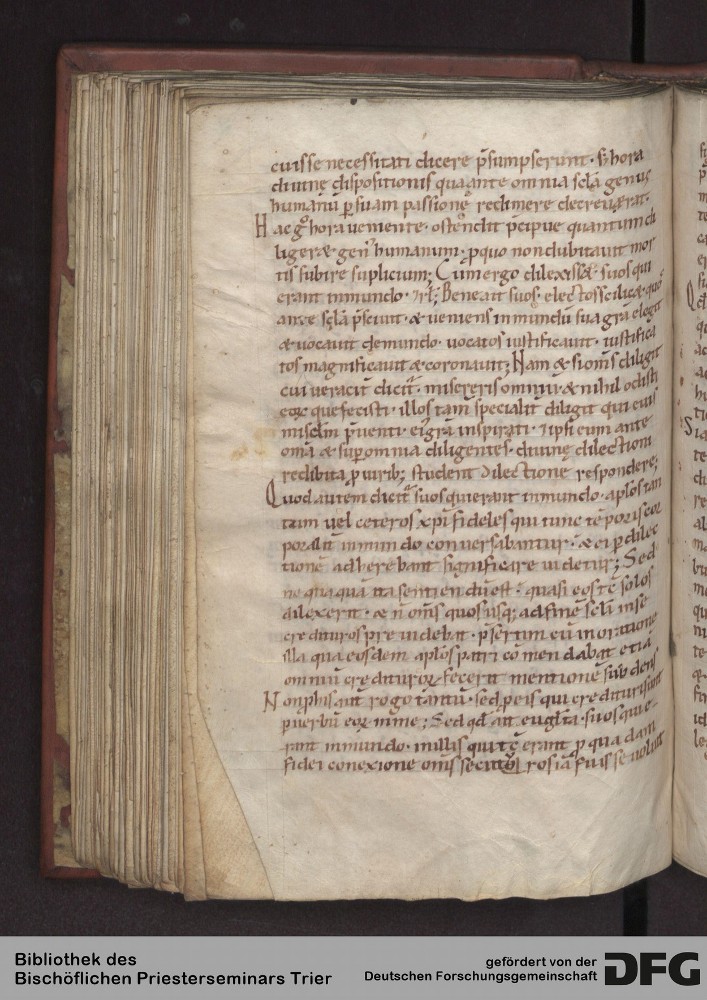 cuisse necessitati dicere p̄sumpserunt · s; hora
diuinę dispositionis qua ante omnia sc̄la genus
humanū p suam passionē redimere decreuerat ·
Hac gͦ hora ueniente · ostendit p̄cipue quantum di
ligeret genꝰ humanum · p quo non dubitauit mor
tis subire suplicium; Cum ergo dilexisset suos qui
erant in mundo · Bene ait suos · electos scilicet quos
ante sc̄la p̄sciuit · & ueniens in mundū sua grā elegit
& uocauit de mundo · uocatos iustificauit · iustifica
tos magnificauit & coronauit; Nam & si om̄s diligit
cui ueracit̄ dicit̄ · misereris omniū · & nihil odisti
eoꝝ que fecisti · illos tam̄ specialit̄ diligit qui eius
mis̄dia p̄uenti · ei grā inspirati · ipsi eum ante
om̄a & sup omnia diligentes · diuinę dilectioni
redibita p uirib; student dilectione respondere;
Quod autem dicit̄ suos qui erant in mundo · aplos tan
tum uel ceteros xp̄i fideles qui tunc tēporis cor
poralit̄ in mundo conuersabantur · & ei p dilec
tionē adherebant significare uidetur; Sed
ne quaquā ita sentiendū est · quasi eos tc̄ solos
dilexerit · & n̄ om̄s quos usq; ad finē sc̄li in se
credituros pre uidebat · p̄sertim cū in oratione
illa qua eosdem aplos patri cōmendabat etiā
omniū credituroꝝ fecerit mentionē sub dens
Non p his aut̄ rogo tantū · sed p eis qui credituri sunt
p uerbū eoꝝ in me; Sed qd ait eugl̄ta · suos qui e-
rant in mundo · in illis qui tc̄ erant p qua dam
fidei conexione om̄s secuturos iā fuisse uoluit
Bibliothek des
Bischöflichen Priesterseminars Trier
gefördert von der
Deutschen Forschungsgemeinschaft
DFG